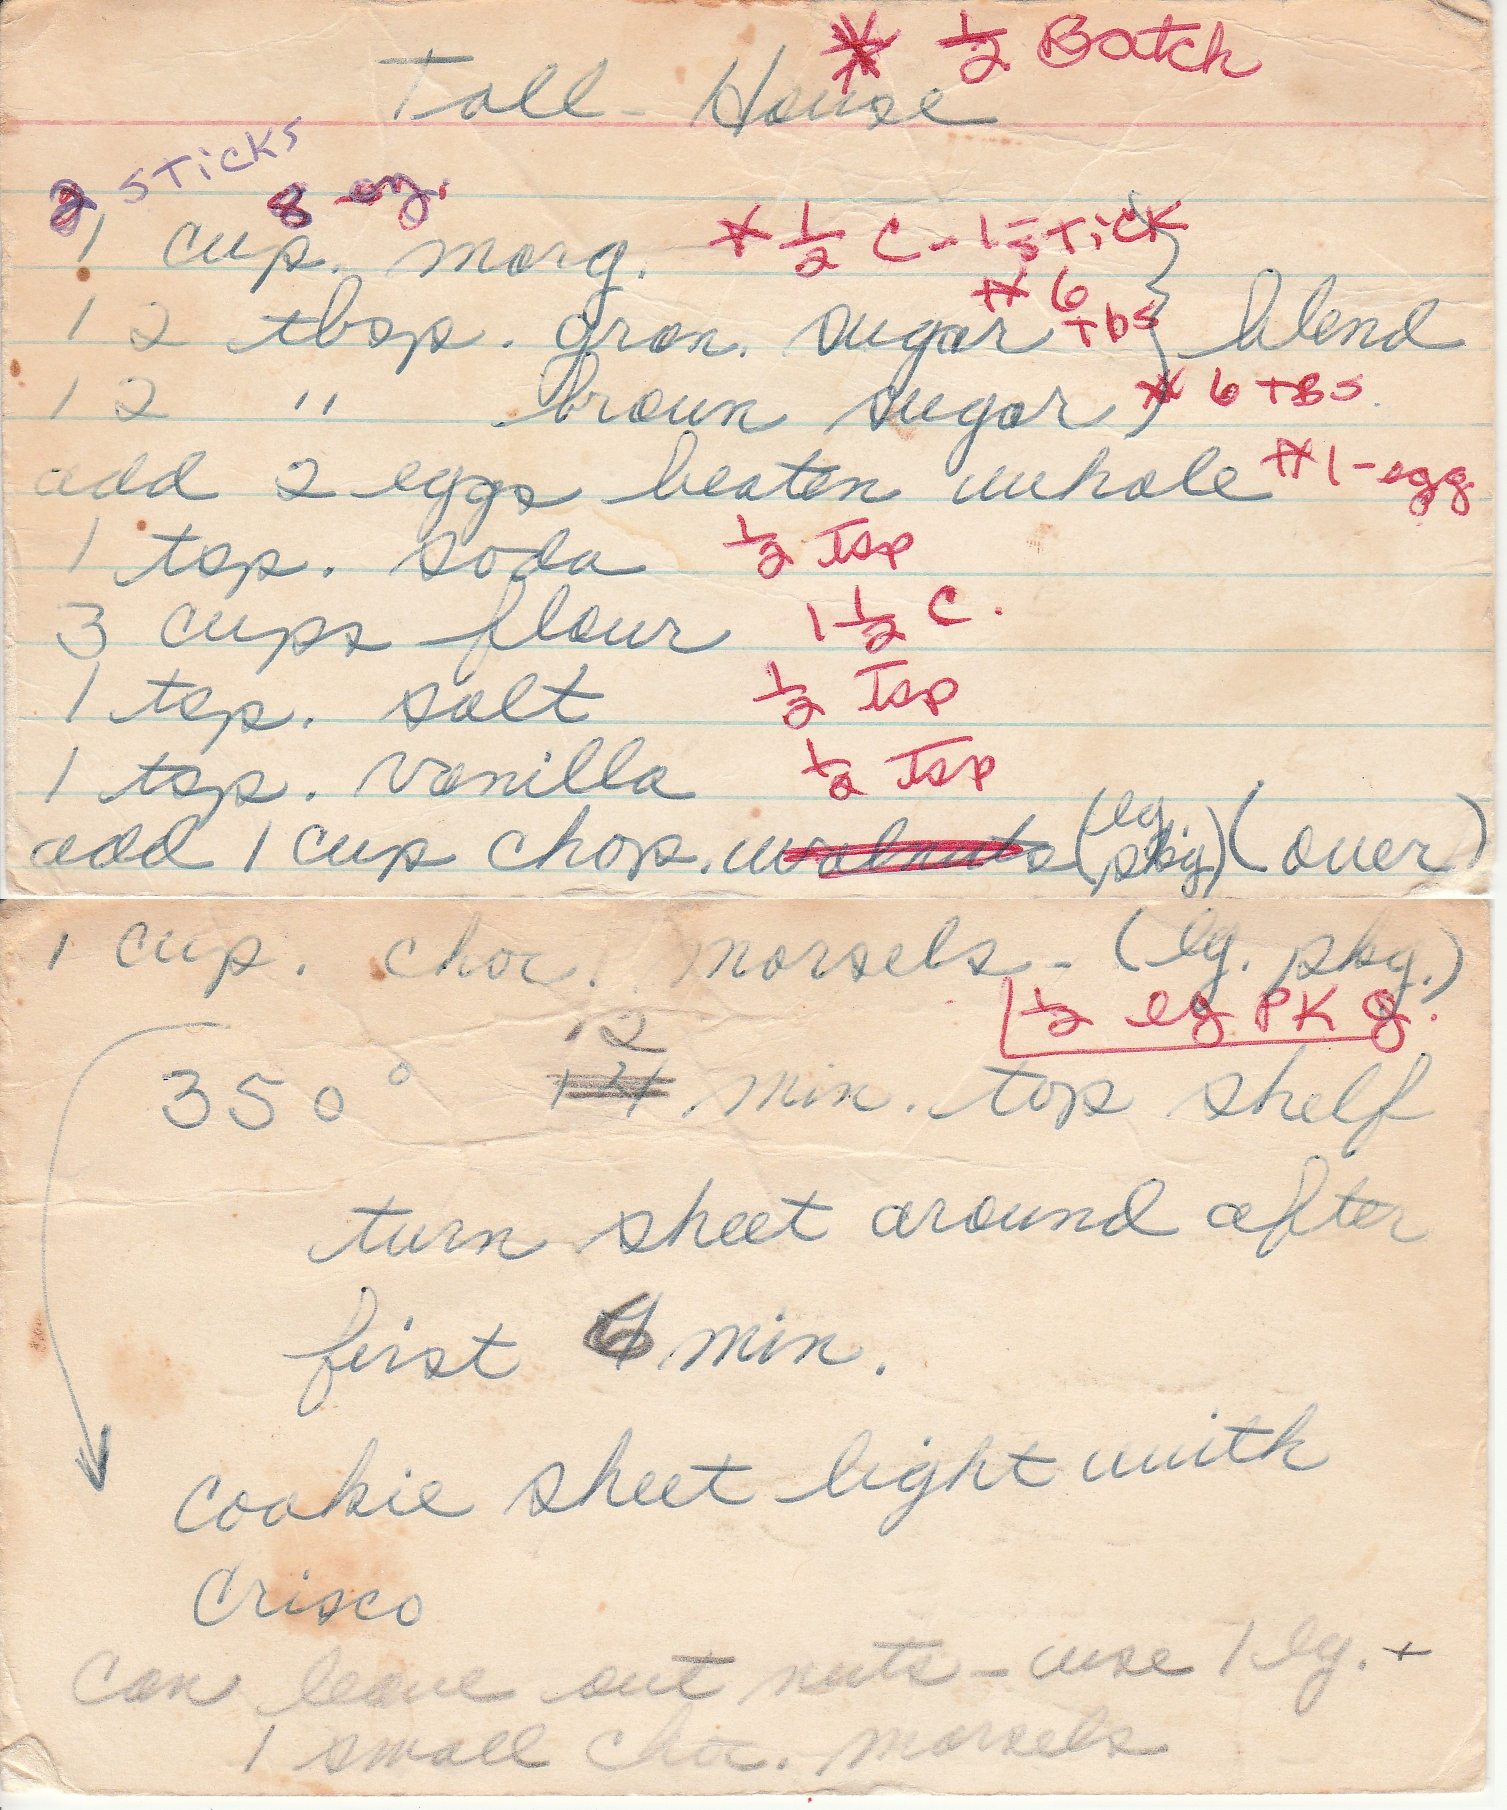 * 1/2 Batch
Toll-House
2 STICKS 8 oz.
1 cup. marg. * 1/2 C - 1 STICK
12 tbsp. gran. sugar * 6 TBS } blend
12 " brown sugar * 6 TBS.
add 2 eggs beaten whole * 1-egg
1 tsp. soda 1/2 Tsp
3 cups flour 1 1/2 C.
1 tsp. salt 1/2 Tsp
1 tsp. vanilla 1/2 Tsp
add 1 cup chop. walnuts (lg. pkg) (over)
1 cup. choc. morsels - (lg. pkg.)
1/2 lg PKg.
350° 12 14 min. top shelf
turn sheet around after
first 6 min.
cookie sheet light with
Crisco
can leave out nuts - use 1 lg. +
1 small choc. morsels